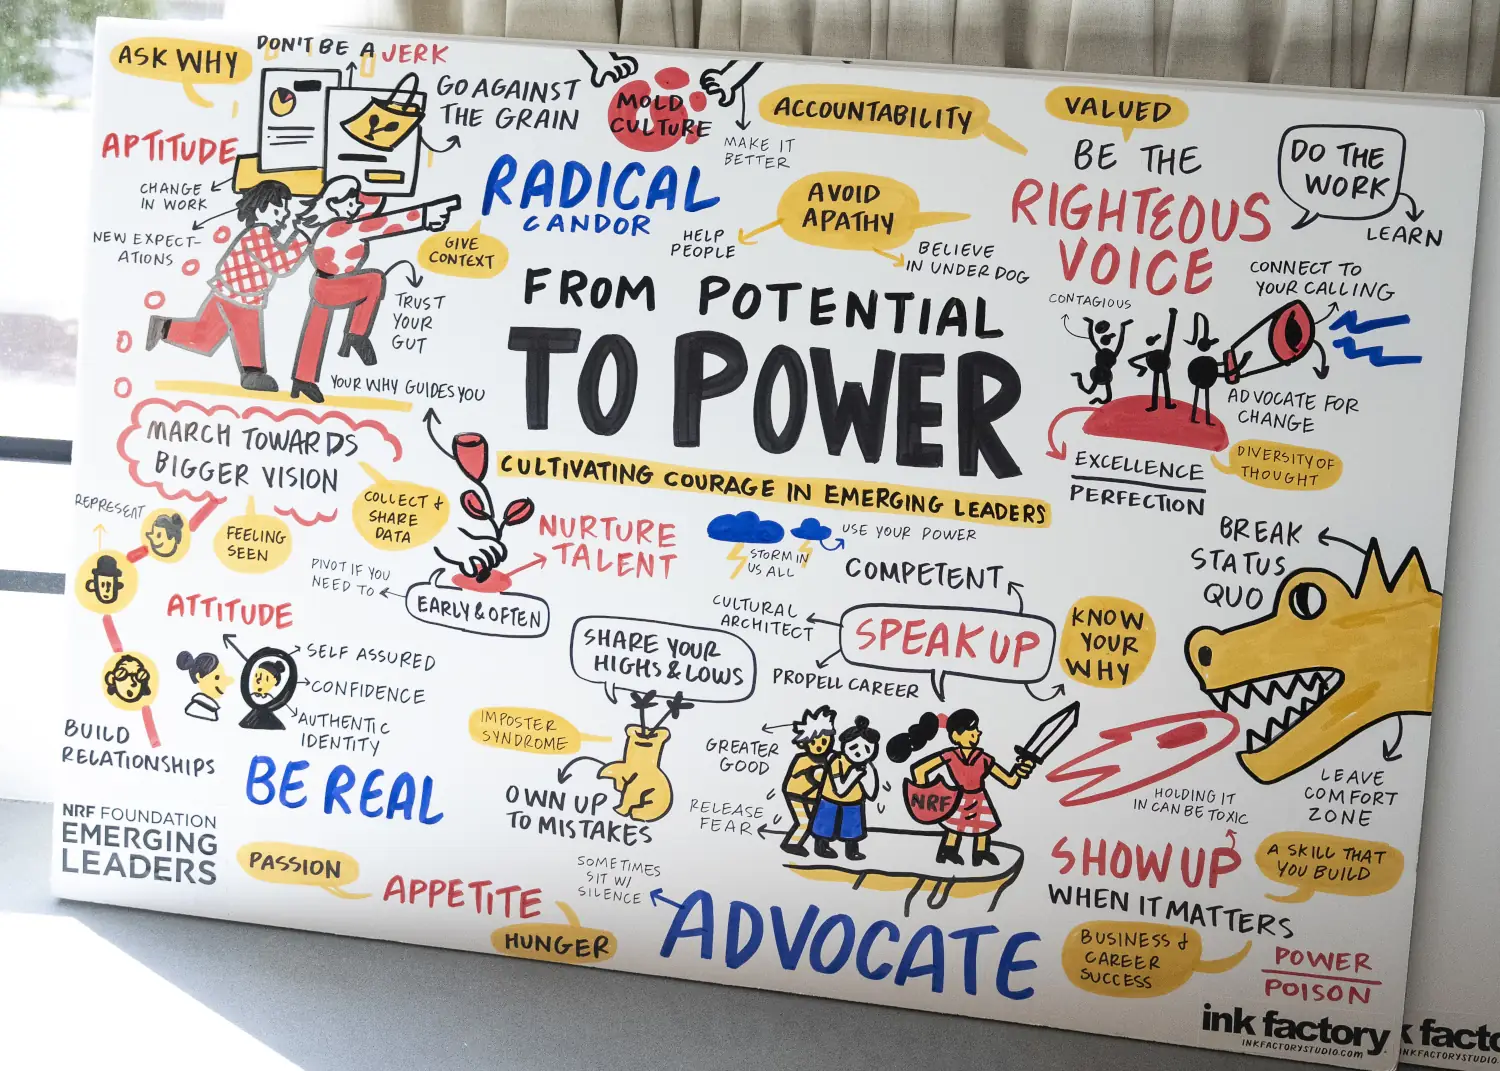 ASK WHY
DON'T BE A JERK
GO AGAINST
THE GRAIN
APTITUDE
CHANGE
IN WORK
NEW EXPECT-
ATIONS
GIVE
CONTEXT
TRUST
YOUR
GUT
MOLD
CULTURE
MAKE IT
BETTER
RADICAL
CANDOR
ACCOUNTABILITY
AVOID
APATHY
HELP
PEOPLE
BELIEVE
IN UNDER DOG
VALUED
BE THE
RIGHTEOUS
VOICE
DO THE
WORK
LEARN
CONNECT TO
YOUR CALLING
CONTAGIOUS
ADVOCATE FOR
CHANGE
EXCELLENCE
PERFECTION
DIVERSITY OF
THOUGHT
FROM POTENTIAL
TO POWER
CULTIVATING COURAGE IN EMERGING LEADERS
YOUR WHY GUIDES YOU
MARCH TOWARDS
BIGGER VISION
REPRESENT
FEELING
SEEN
COLLECT &
SHARE
DATA
NURTURE
TALENT
PIVOT IF YOU
NEED TO
EARLY & OFTEN
STORM IN
US ALL
USE YOUR POWER
COMPETENT
CULTURAL
ARCHITECT
SPEAK UP
PROPELL CAREER
KNOW
YOUR
WHY
BREAK
STATUS
QUO
ATTITUDE
SELF ASSURED
CONFIDENCE
AUTHENTIC
IDENTITY
BUILD
RELATIONSHIPS
BE REAL
SHARE YOUR
HIGHS & LOWS
IMPOSTER
SYNDROME
OWN UP
TO MISTAKES
GREATER
GOOD
RELEASE
FEAR
NRF
HOLDING IT
IN CAN BE TOXIC
LEAVE
COMFORT
ZONE
NRF FOUNDATION
EMERGING
LEADERS
PASSION
APPETITE
HUNGER
SOMETIMES
SIT W/
SILENCE
ADVOCATE
SHOW UP
WHEN IT MATTERS
A SKILL THAT
YOU BUILD
BUSINESS &
CAREER
SUCCESS
POWER
POISON
ink factory
INKFACTORYSTUDIO.COM
k facto
NKFACTORYSTUDIO.